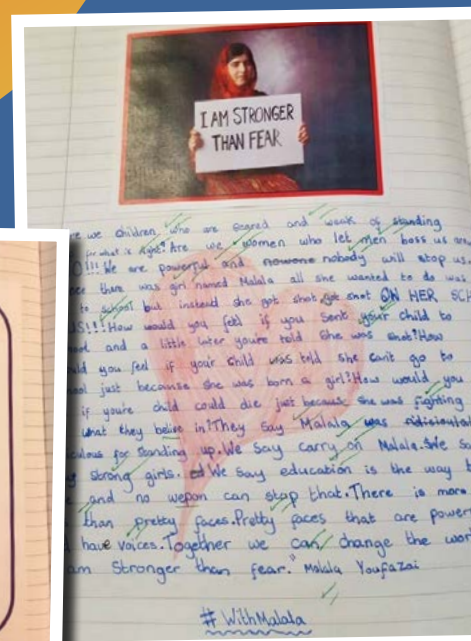 I AM STRONGER
THAN FEAR
we children who are scared and weak of standing
for what is right? Are we women who let men boss us
O!!! We are powerful and nowone nobody will stop us.
there was girl named Malala all she wanted to do was
to school but instead she got shot, got shot ON HER
US!!! How would you feel if you sent your child to
and a little later youre told she was shot? How
you feel if your child was told she can't go to
just because she was born a girl? How would you
if you're child could die just because she was fighting
what they belive in? They say Malala was
for standing up. We say carry on Malala. We
strong girls. We say education is the way
and no wepon can stop that. There is more
than pretty faces. Pretty faces that are
have voices. Together we can change the
am Stronger than fear." Malala Youfazai
# WithMalala